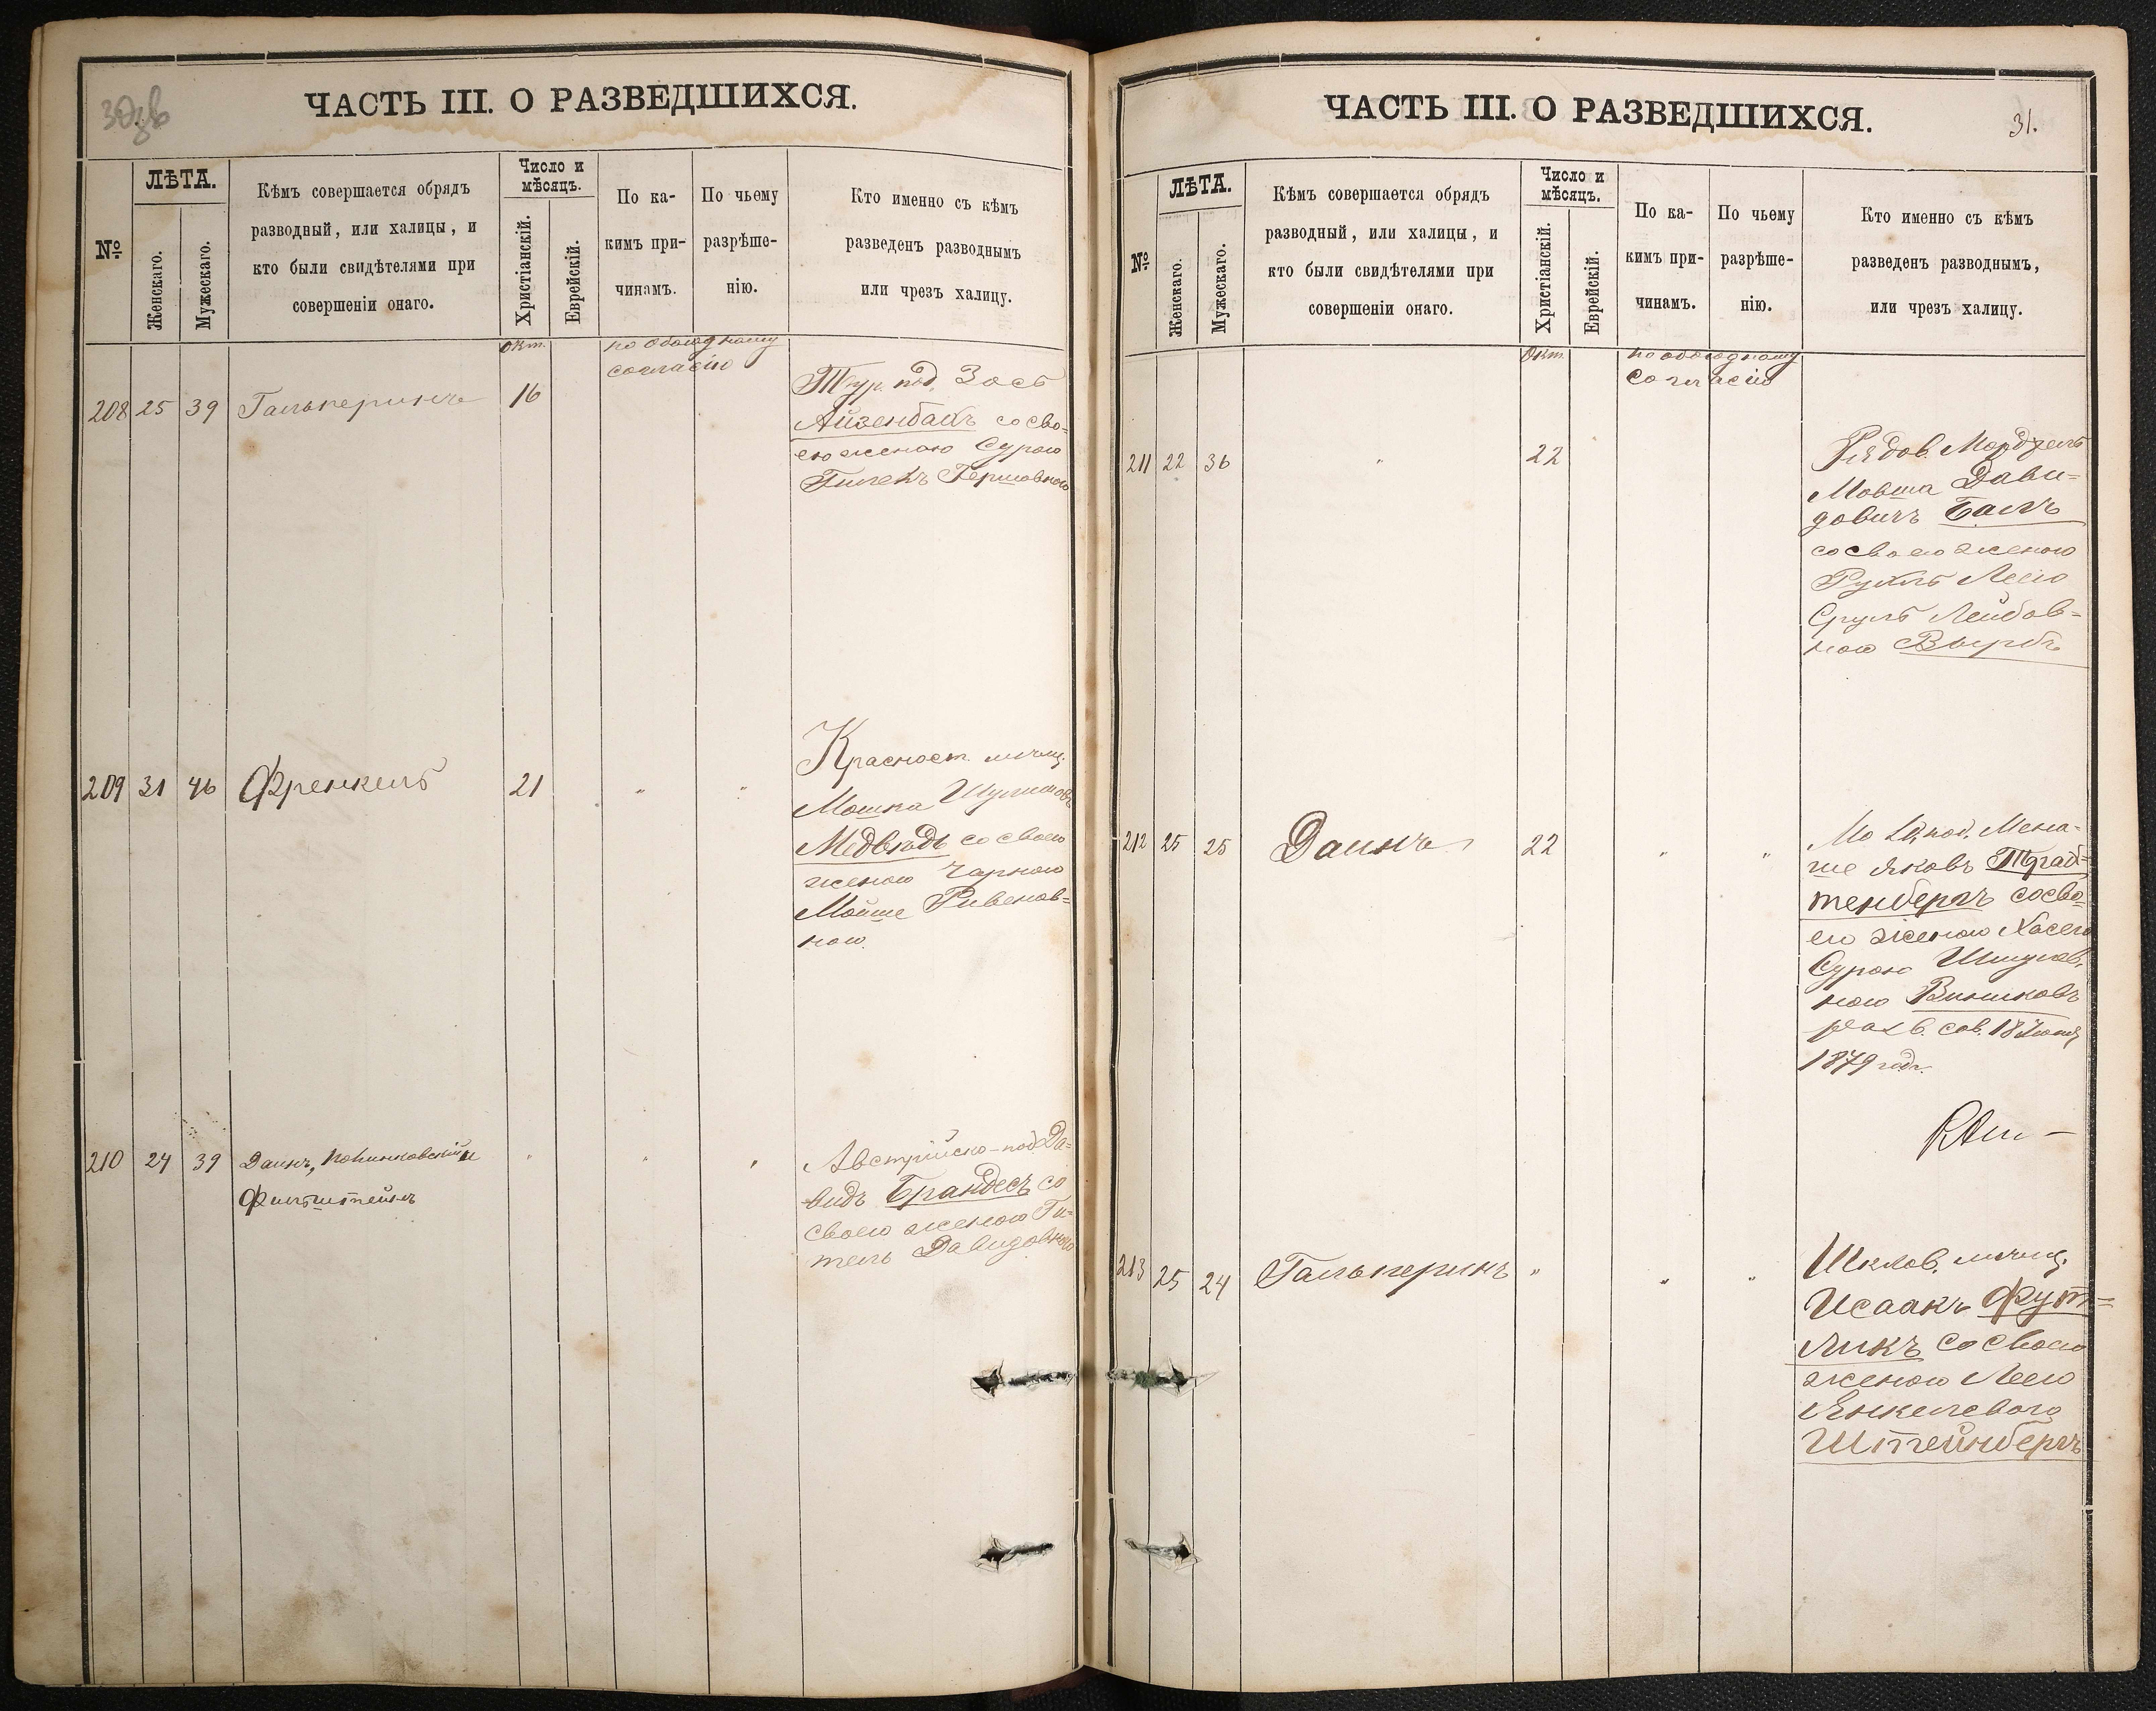 ЧАСТЬ III. О РАЗВЕДШИХСЯ.
№
ЛѢТА.
Женскаго.
Мужескаго.
Кѣмъ совершается обрядъ
разводный, или халицы, и
кто были свидѣтелями при
совершеніи онаго.
Число и
мѣсяцъ.
Христіанскій.
Еврейскій.
По ка-
кимъ при-
чинамъ.
По чьему
разрѣше-
нію.
Кто именно съ кѣмъ
разведенъ разводнымъ
или чрезъ халицу.
Окт.
по обоюдному
согласію
208 25 39 Гальперинъ 16
Тур. под.
Айзенбакъ со сво-
ею женою Сурою
Гершовною
209 31 46 Френкель 21 " "
Красност. мѣщ.
Мошка
Медвѣдь со своею
женою Чарною
Мойше Ривенов-
ною.
210 24 39 Даинъ, и " " "
Финштейнъ
Австрійско-под. Да-
видъ Брандесъ со
своею женою Ги-
тель Давидовною
ЧАСТЬ III. О РАЗВЕДШИХСЯ.
31.
№
ЛѢТА.
Женскаго.
Мужескаго.
Кѣмъ совершается обрядъ
разводный, или халицы, и
кто были свидѣтелями при
совершеніи онаго.
Число и
мѣсяцъ.
Христіанскій.
Еврейскій.
По ка-
кимъ при-
чинамъ.
По чьему
разрѣше-
нію.
Кто именно съ кѣмъ
разведенъ разводнымъ,
или чрезъ халицу.
Окт.
по обоюдному
согласію
211 22 36 " 22
Рядов.
Мовша Дави-
довичъ Балъ
со своею женою
Рухль Леею
Сруль Лейбов-
ною
212 25 25 Даинъ 22 " "
под. Мена-
ше Яковъ
тенбергъ со сво-
ею женою Хасею
Сурою
ною Винниковъ
разв. сов. 18
1879 годъ.
213 25 24 Гальперинъ " " "
Шклов. мѣщ.
Исаакъ Фут=
ликъ со своею
женою Леею
Янкелевою
Штейнбергъ